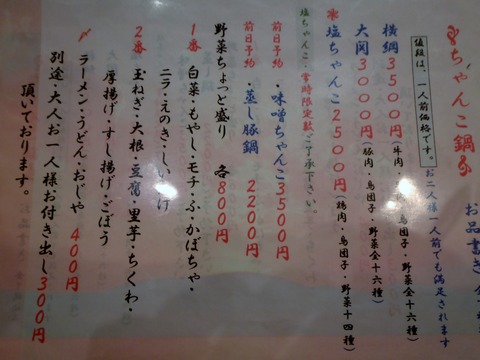 ちゃんこ鍋
お品書き
値段は、一人前価格です。
お二人様一人前でも満足されます
横綱 3500円(牛肉・鳥団子・野菜全十六種)
大関 3000円(豚肉・鳥団子・野菜全十六種)
*塩ちゃんこ 2500円(鶏肉・鳥団子・野菜十四種)
塩ちゃんこ、常時限定数ご了承下さい。
前日予約・味噌ちゃんこ 3500円
前日予約・蒸し豚鍋 2200円
野菜ちょっと盛り 各800円
1番 白菜・もやし・モチ・ふ・かぼちゃ・
ニラ・えのき・しいたけ
2番 玉ねぎ・大根・豆腐・里芋・ちくわ・
厚揚げ・すし揚げ・ごぼう
〆 ラーメン・うどん・おじや 400円
別途・大人お一人様お付き出し300円
頂いております。